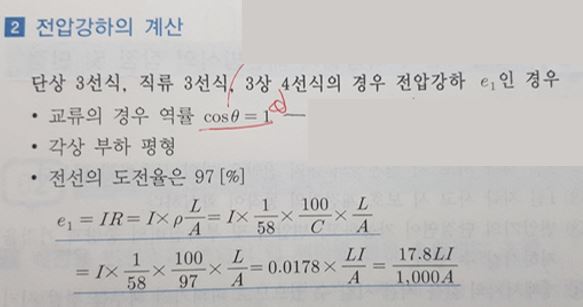 2 전압강하의 계산
단상 3선식, 직류 3선식, 3상 4선식의 경우 전압강하 e₁인 경우
• 교류의 경우 역률 cosθ = 1
• 각상 부하 평형
• 전선의 도전율은 97 [%]
e₁ = IR = I × ρ L/A = I × 1/58 × 100/C × L/A
= I × 1/58 × 100/97 × L/A = 0.0178 × LI/A = 17.8LI/1,000A